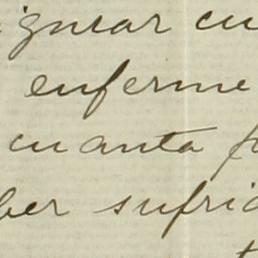 ignear cu
enferme
cuanta f
ber sufrid